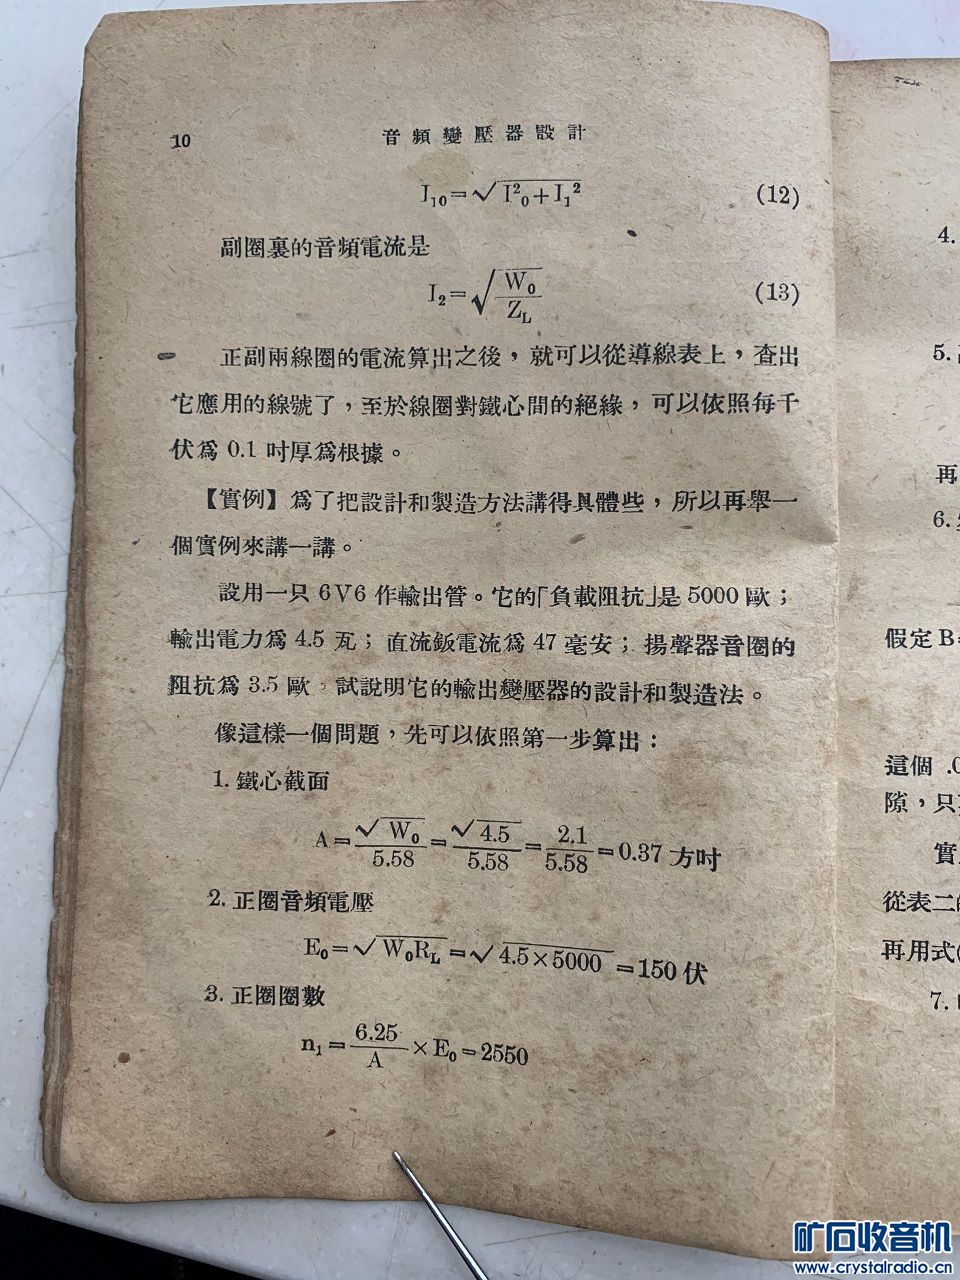 10 音頻變壓器設計
I₁₀=√I²₀+I₁² (12)
副圈裏的音頻電流是
I₂=√W₀/Z_L (13)
正副兩線圈的電流算出之後，就可以從導線表上，查出
它應用的線號了，至於線圈對鐵心間的絕緣，可以依照每千
伏爲 0.1 吋厚爲根據。
【實例】爲了把設計和製造方法講得具體些，所以再舉一
個實例來講一講。
設用一只 6V6 作輸出管。它的「負載阻抗」是 5000 歐；
輸出電力爲 4.5 瓦；直流鈑電流爲 47 毫安；揚聲器音圈的
阻抗爲 3.5 歐。試說明它的輸出變壓器的設計和製造法。
像這樣一個問題，先可以依照第一步算出：
1. 鐵心截面
A=√W₀/5.58=√4.5/5.58=2.1/5.58=0.37 方吋
2. 正圈音頻電壓
E₀=√W₀R_L=√4.5×5000=150 伏
3. 正圈圈數
n₁=6.25/A×E₀=2550
4.
5.
再
6.
假定 B
這個 .0
隙，只
實
從表二
再用式(
7.
矿石收音机
www.crystalradio.cn